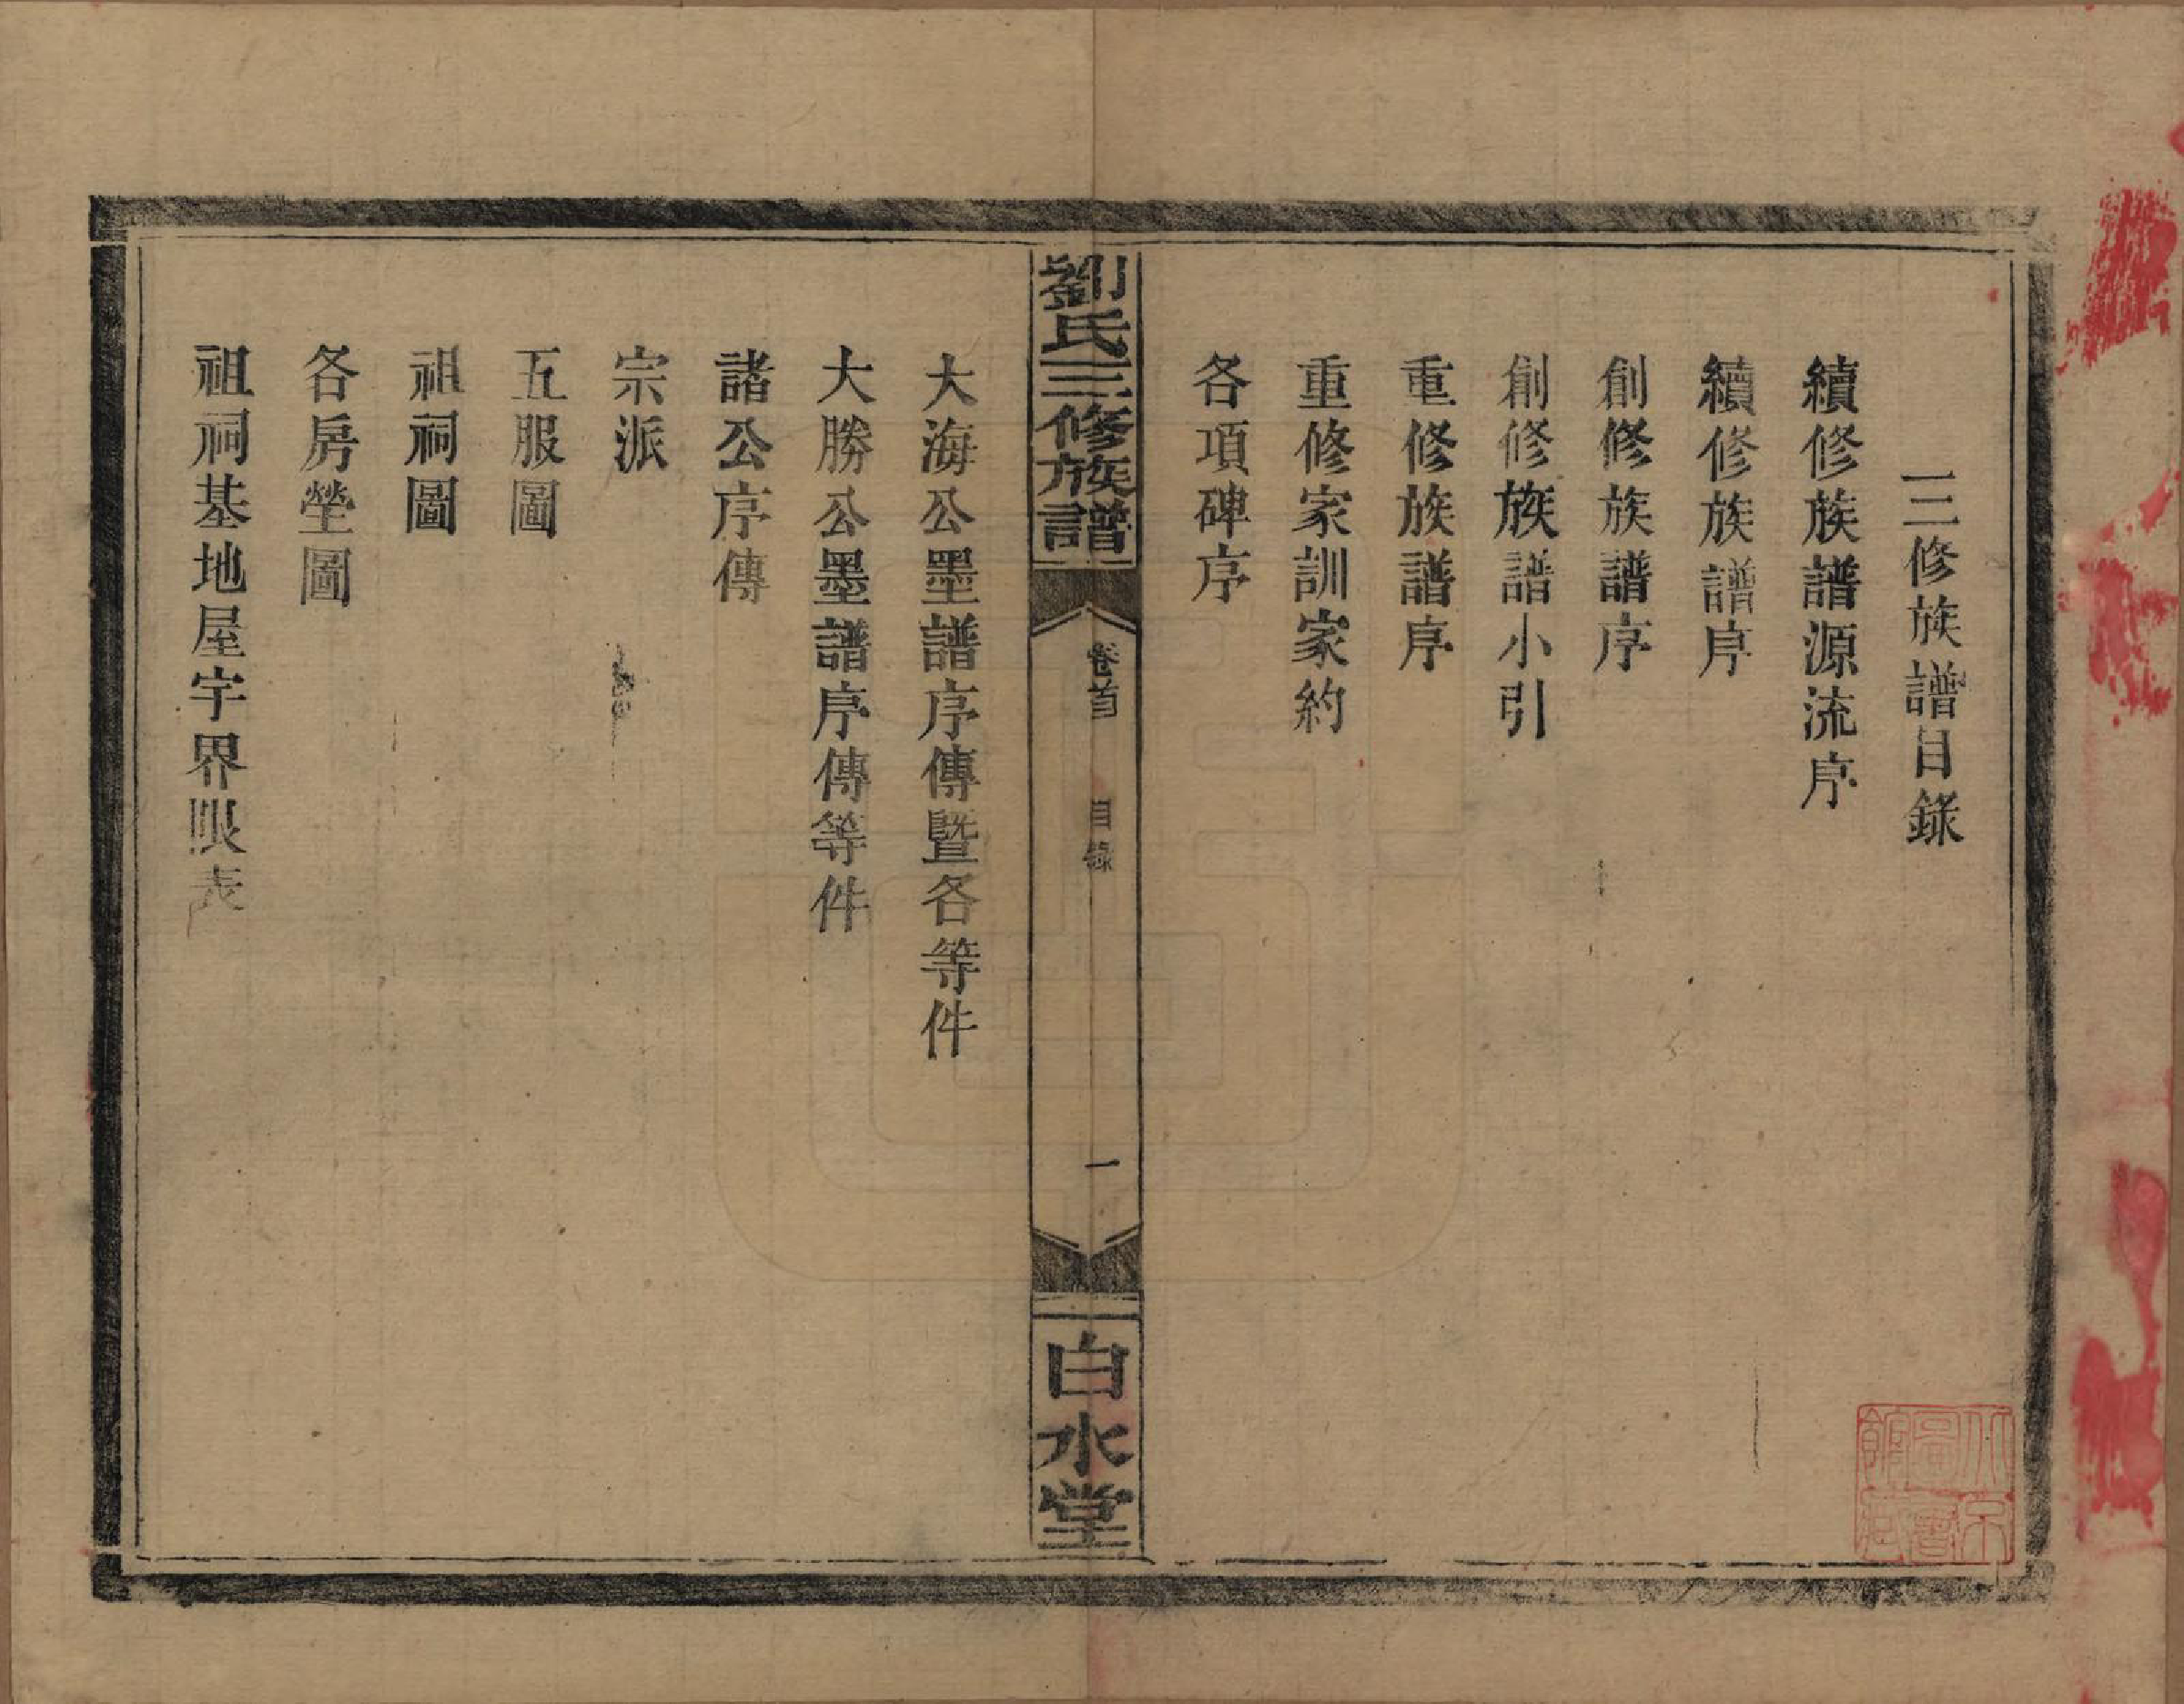 三修族譜目錄
續修族譜源流序
續修族譜序
創修族譜序
創修族譜小引
重修族譜序
重修家訓家約
各項碑序
劉氏三修族譜
卷首
目錄
一
白水堂
大海公墨譜序傳暨各等件
大勝公墨譜序傳等件
諸公序傳
宗派
五服圖
祖祠圖
各房塋圖
祖祠基地屋宇界限表
北京圖書館藏